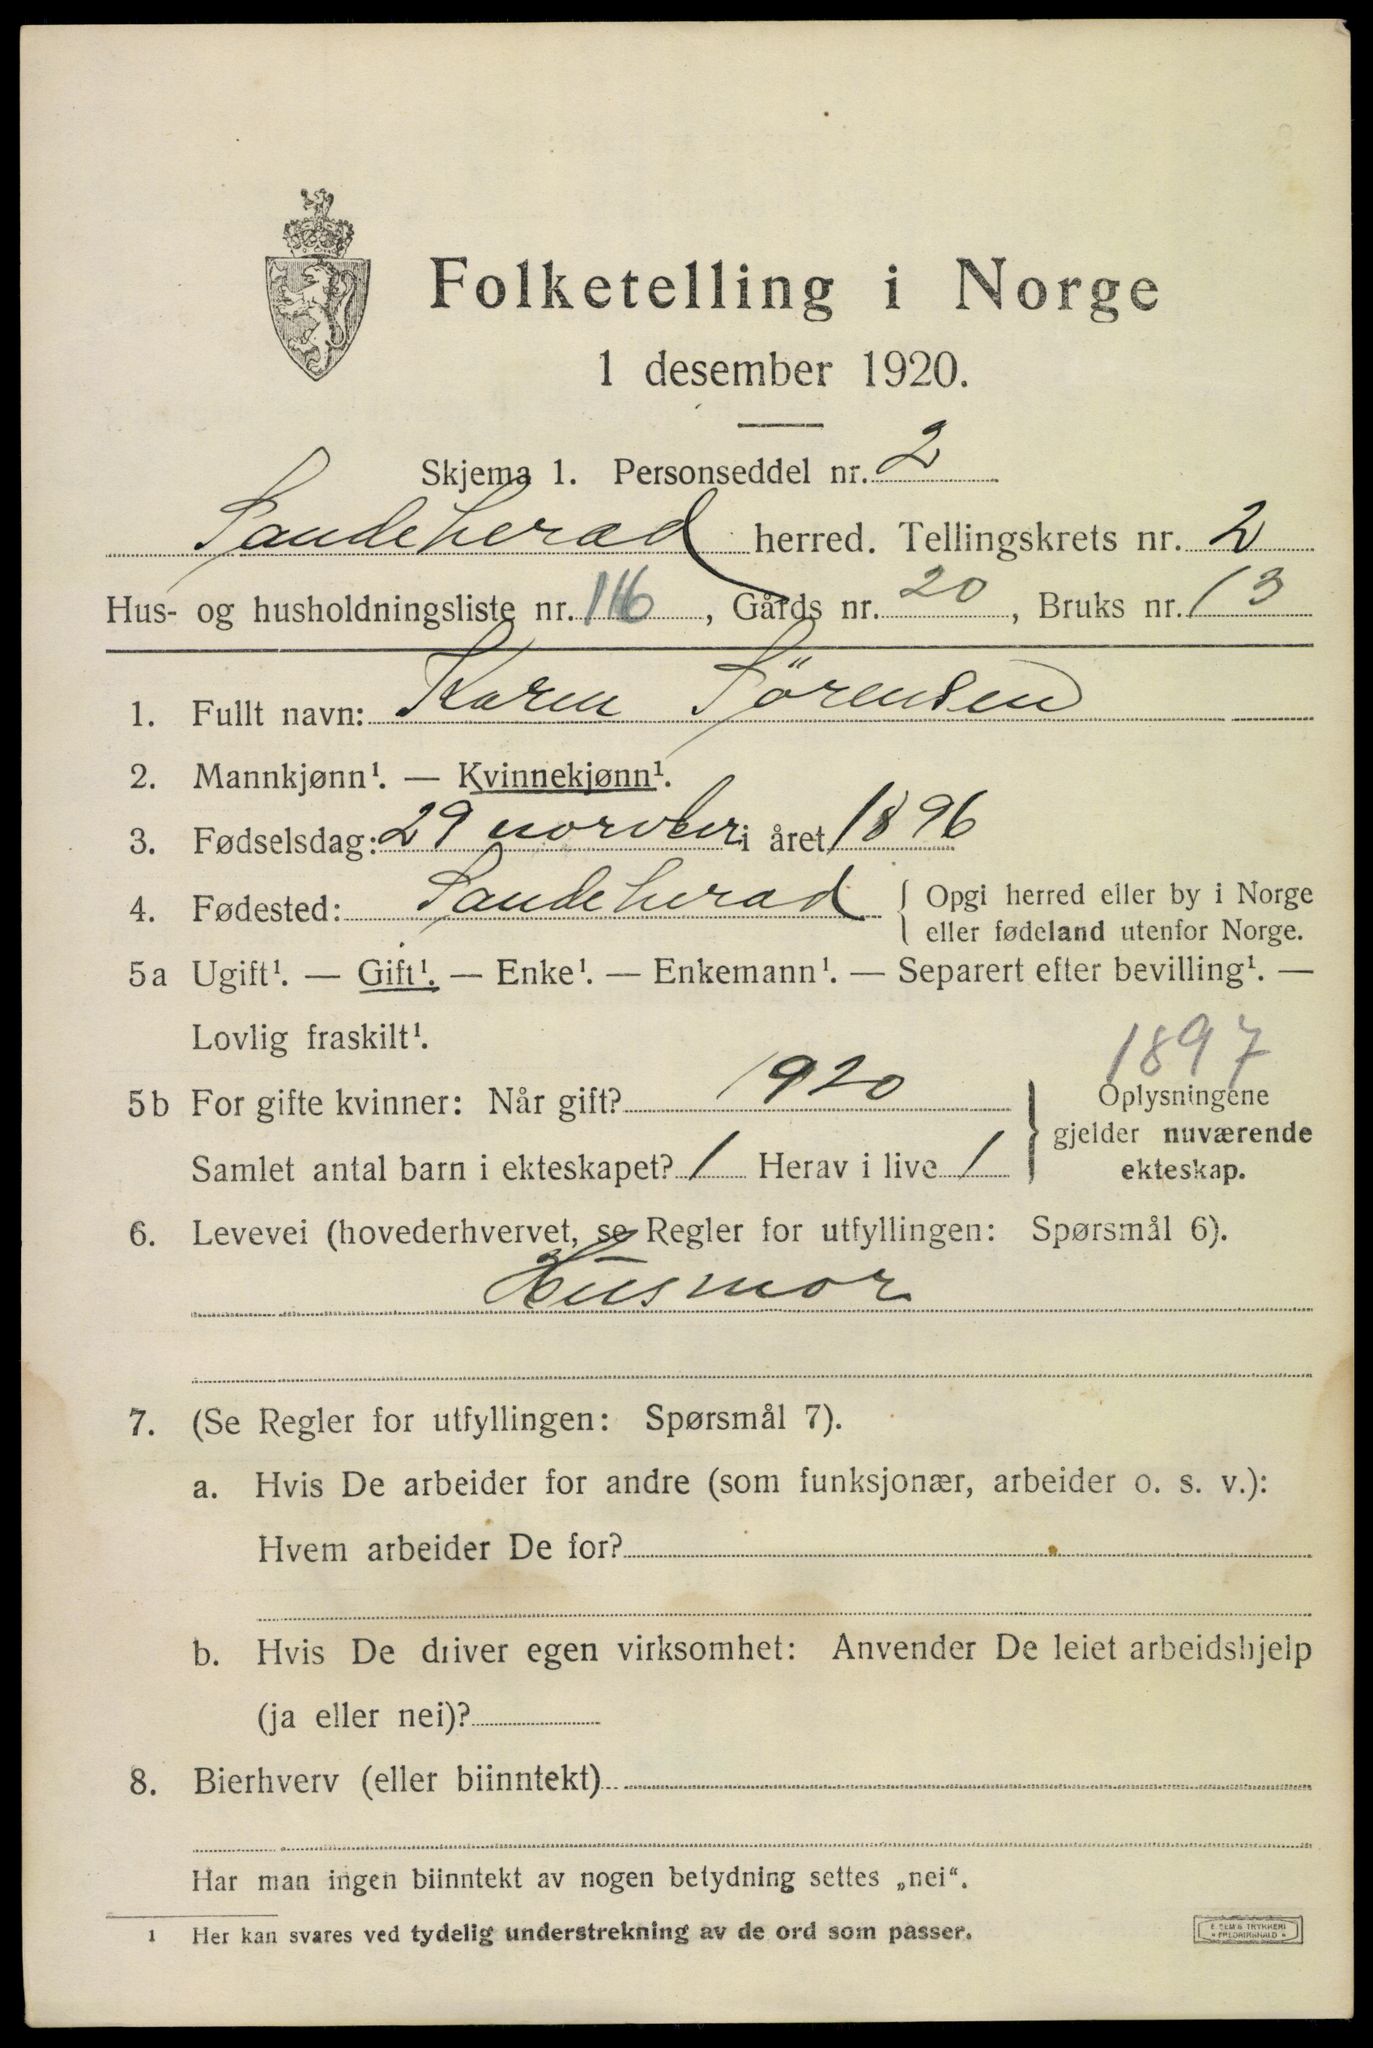 Folketelling i Norge
1 desember 1920.
Skjema 1. Personseddel nr. 2
Sandeherad herred. Tellingskrets nr. 2
Hus- og husholdningsliste nr. 116, Gårds nr. 20, Bruks nr. 13
1. Fullt navn: Karen Sörensen
2. Mannkjønn¹. — Kvinnekjønn¹.
3. Fødselsdag: 29 novber i året 1896
4. Fødested: Sandeherad { Opgi herred eller by i Norge
eller fødeland utenfor Norge.
5a Ugift¹. — Gift¹. — Enke¹. — Enkemann¹. — Separert efter bevilling¹. —
Lovlig fraskilt¹.
1897
5b For gifte kvinner: Når gift? 1920 } Oplysningene
gjelder nuværende
Samlet antal barn i ekteskapet? 1 Herav i live 1 ekteskap.
6. Levevei (hovederhvervet, se Regler for utfyllingen: Spørsmål 6).
Husmor
7. (Se Regler for utfyllingen: Spørsmål 7).
a. Hvis De arbeider for andre (som funksjonær, arbeider o. s. v.):
Hvem arbeider De for?
b. Hvis De driver egen virksomhet: Anvender De leiet arbeidshjelp
(ja eller nei)?
8. Bierhverv (eller biinntekt)
Har man ingen biinntekt av nogen betydning settes „nei“.
1 Her kan svares ved tydelig understrekning av de ord som passer.
E. SEM'S TRYKKERI
FREDRIKSHALD